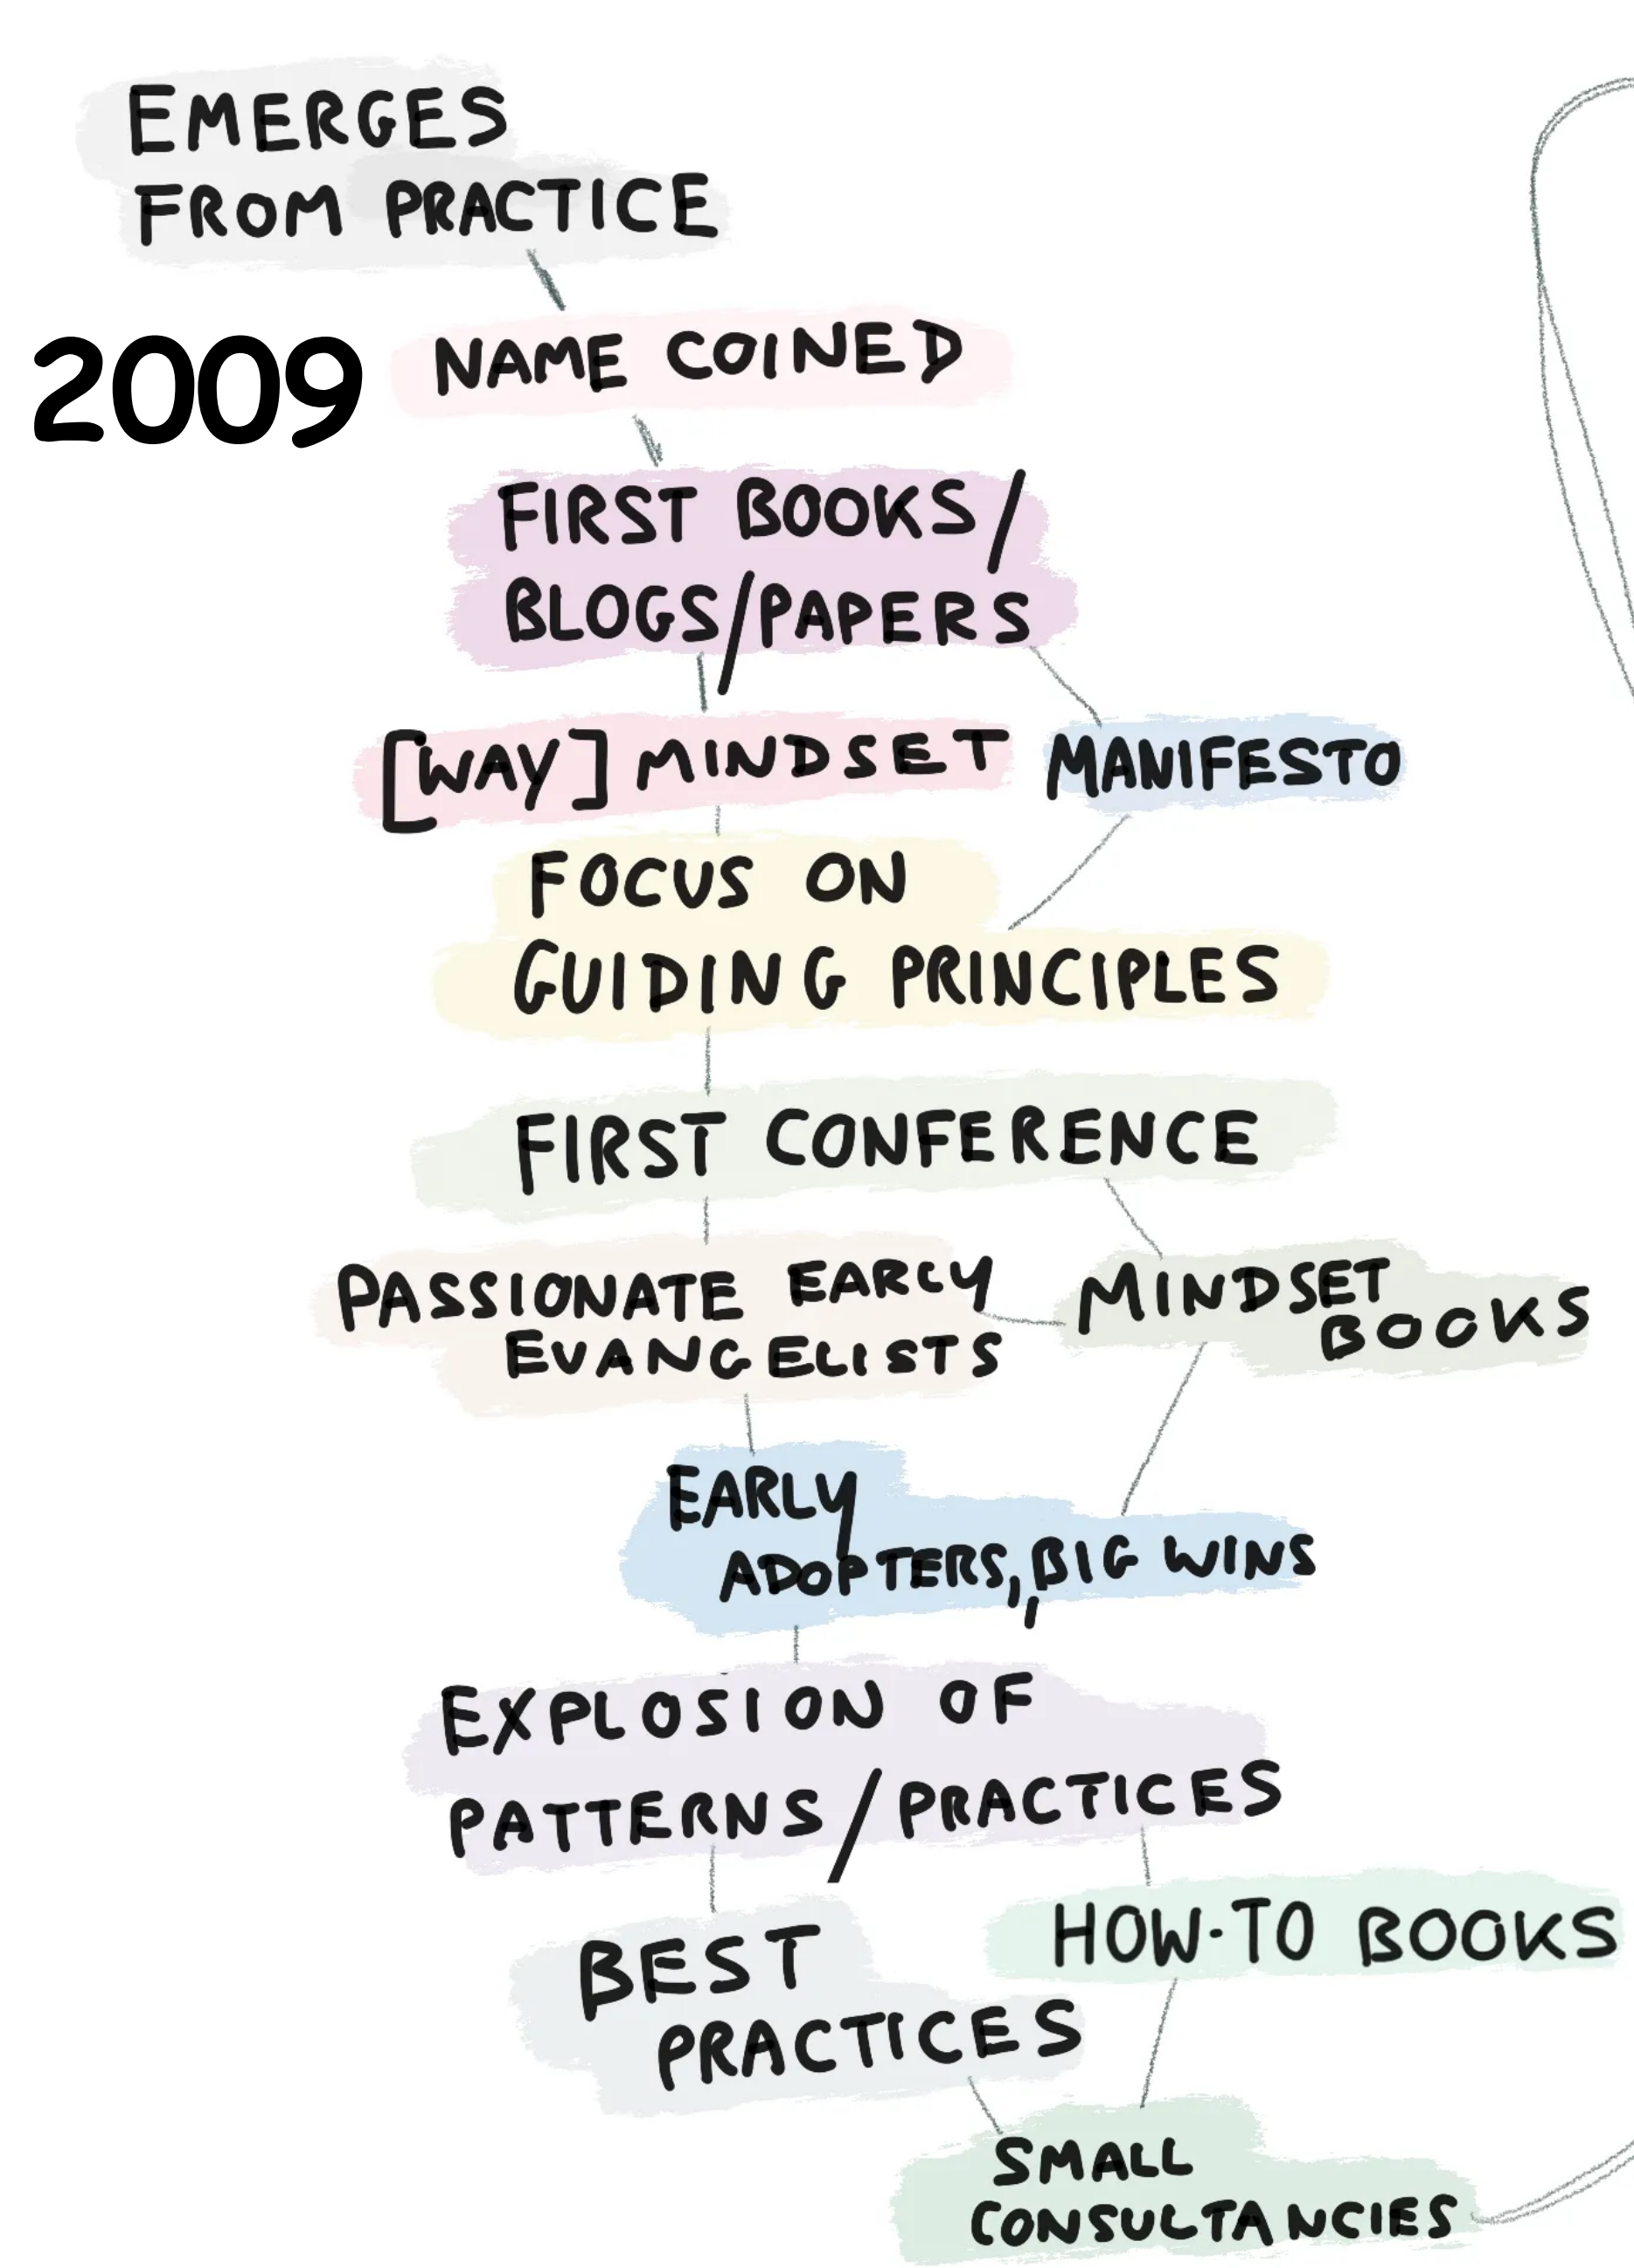 EMERGES
FROM PRACTICE
2009 NAME COINED
FIRST BOOKS/
BLOGS/PAPERS
[WAY] MINDSET MANIFESTO
FOCUS ON
GUIDING PRINCIPLES
FIRST CONFERENCE
PASSIONATE EARLY
EVANGELISTS
MINDSET
BOOKS
EARLY
ADOPTERS, BIG WINS
EXPLOSION OF
PATTERNS/PRACTICES
HOW-TO BOOKS
BEST
PRACTICES
SMALL
CONSULTANCIES